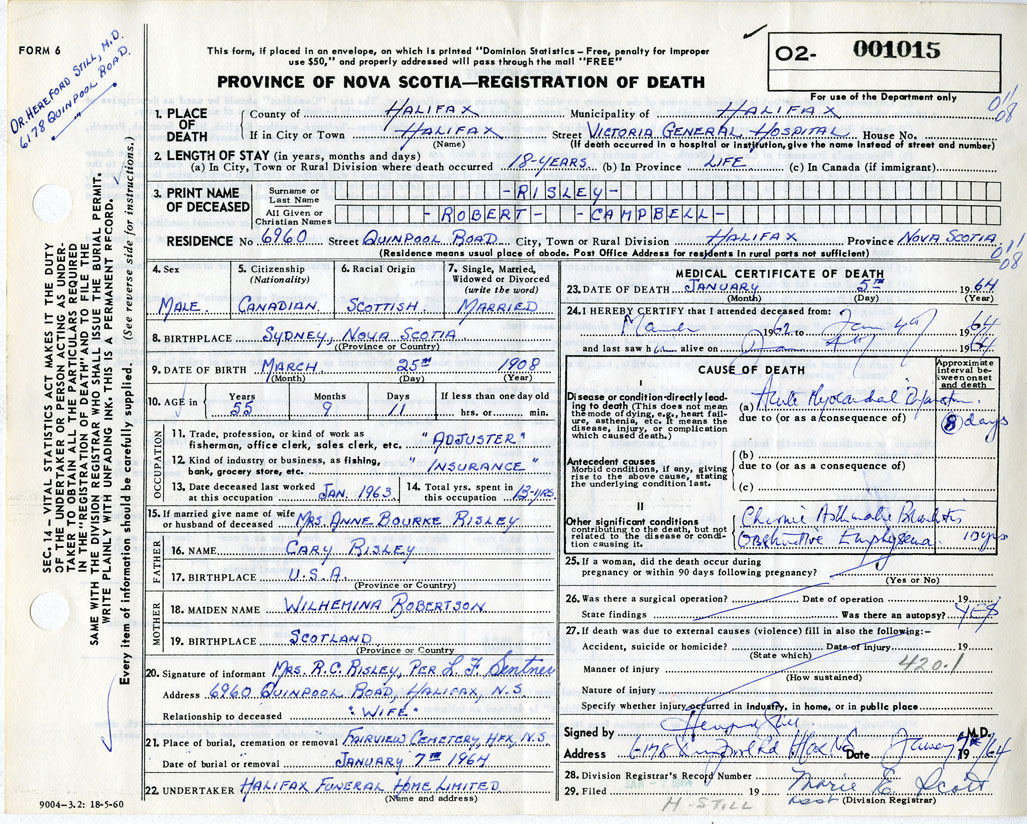 FORM 6
DR. HEREFORD STILL, M.D.
6178 QUINPOOL ROAD.
This form, if placed in an envelope, on which is printed "Dominion Statistics – Free, penalty for improper
use $50," and properly addressed will pass through the mail "FREE"
PROVINCE OF NOVA SCOTIA—REGISTRATION OF DEATH
O2- 001015
For use of the Department only
011
08
1. PLACE OF DEATH
County of HALIFAX Municipality of HALIFAX
If in City or Town HALIFAX Street VICTORIA GENERAL HOSPITAL House No.
(Name) (If death occurred in a hospital or institution, give the name instead of street and number)
2. LENGTH OF STAY (in years, months and days)
(a) In City, Town or Rural Division where death occurred 18-YEARS (b) In Province LIFE (c) In Canada (if immigrant)
3. PRINT NAME OF DECEASED
Surname or Last Name -RISLEY-
All Given or Christian Names -ROBERT- -CAMPBELL-
RESIDENCE No 6960 Street QUINPOOL ROAD City, Town or Rural Division HALIFAX Province NOVA SCOTIA
(Residence means usual place of abode. Post Office Address for residents in rural parts not sufficient)
011
08
SEC. 14 – VITAL STATISTICS ACT MAKES IT THE DUTY
OF THE UNDERTAKER OR PERSON ACTING AS UNDER-
TAKER TO OBTAIN ALL THE PARTICULARS REQUIRED
IN THE "REGISTRATION OF DEATH" AND TO FILE THE
SAME WITH THE DIVISION REGISTRAR WHO SHALL ISSUE THE BURIAL PERMIT.
WRITE PLAINLY WITH UNFADING INK. THIS IS A PERMANENT RECORD.
Every item of information should be carefully supplied. (See reverse side for instructions.)
4. Sex
MALE
5. Citizenship
(Nationality)
CANADIAN
6. Racial Origin
SCOTTISH
7. Single, Married,
Widowed or Divorced
(write the word)
MARRIED
8. BIRTHPLACE SYDNEY, NOVA SCOTIA
(Province or Country)
9. DATE OF BIRTH MARCH 25TH 1908
(Month) (Day) (Year)
10. AGE in Years 55 Months 9 Days 11 If less than one day old hrs. or min.
OCCUPATION
11. Trade, profession, or kind of work as
fisherman, office clerk, sales clerk, etc. "ADJUSTER"
12. Kind of industry or business, as fishing,
bank, grocery store, etc. "INSURANCE"
13. Date deceased last worked
at this occupation JAN. 1963
14. Total yrs. spent in
this occupation 13-YRS.
15. If married give name of wife
or husband of deceased MRS. ANNE BOURKE RISLEY
FATHER
16. NAME CARY RISLEY
17. BIRTHPLACE U.S.A.
(Province or Country)
MOTHER
18. MAIDEN NAME WILHEMINA ROBERTSON
19. BIRTHPLACE SCOTLAND
(Province or Country)
20. Signature of informant MRS. R.C. RISLEY, PER L F Sentner
Address 6960 QUINPOOL ROAD, HALIFAX, N.S.
Relationship to deceased "WIFE"
21. Place of burial, cremation or removal FAIRVIEW CEMETERY, HFX, N.S.
Date of burial or removal JANUARY 7TH 1964
22. UNDERTAKER HALIFAX FUNERAL HOME LIMITED
(Name and address)
9004–3.2: 18-5-60
MEDICAL CERTIFICATE OF DEATH
23. DATE OF DEATH JANUARY 5TH 1964
(Month) (Day) (Year)
24. I HEREBY CERTIFY that I attended deceased from:
March 1962 to 1964
and last saw him alive on 1964
CAUSE OF DEATH
Approximate interval between onset and death
I
Disease or condition directly lead-
ing to death (This does not mean
the mode of dying, e.g., heart fail-
ure, asthenia, etc. It means the
disease, injury, or complication
which caused death.)
(a) Acute Myocardial Infarction 8 days
due to (or as a consequence of)
Antecedent causes
Morbid conditions, if any, giving
rise to the above cause, stating
the underlying condition last.
(b)
due to (or as a consequence of)
(c)
II
Other significant conditions
contributing to the death, but not
related to the disease or condi-
tion causing it.
Chronic Asthmatic Bronchitis
Obstructive Emphysema 10 yrs
25. If a woman, did the death occur during
pregnancy or within 90 days following pregnancy?
(Yes or No)
26. Was there a surgical operation? Date of operation 19
State findings Was there an autopsy? YES
27. If death was due to external causes (violence) fill in also the following:–
Accident, suicide or homicide? Date of injury 19
(State which)
420.1
Manner of injury
(How sustained)
Nature of injury
Specify whether injury occurred in industry, in home, or in public place
Signed by Hereford Still M.D.
Address 6178 Quinpool Rd Hfx NS Date 1964
28. Division Registrar's Record Number
29. Filed 19 Marie E. Scott
H-STILL Asst (Division Registrar)